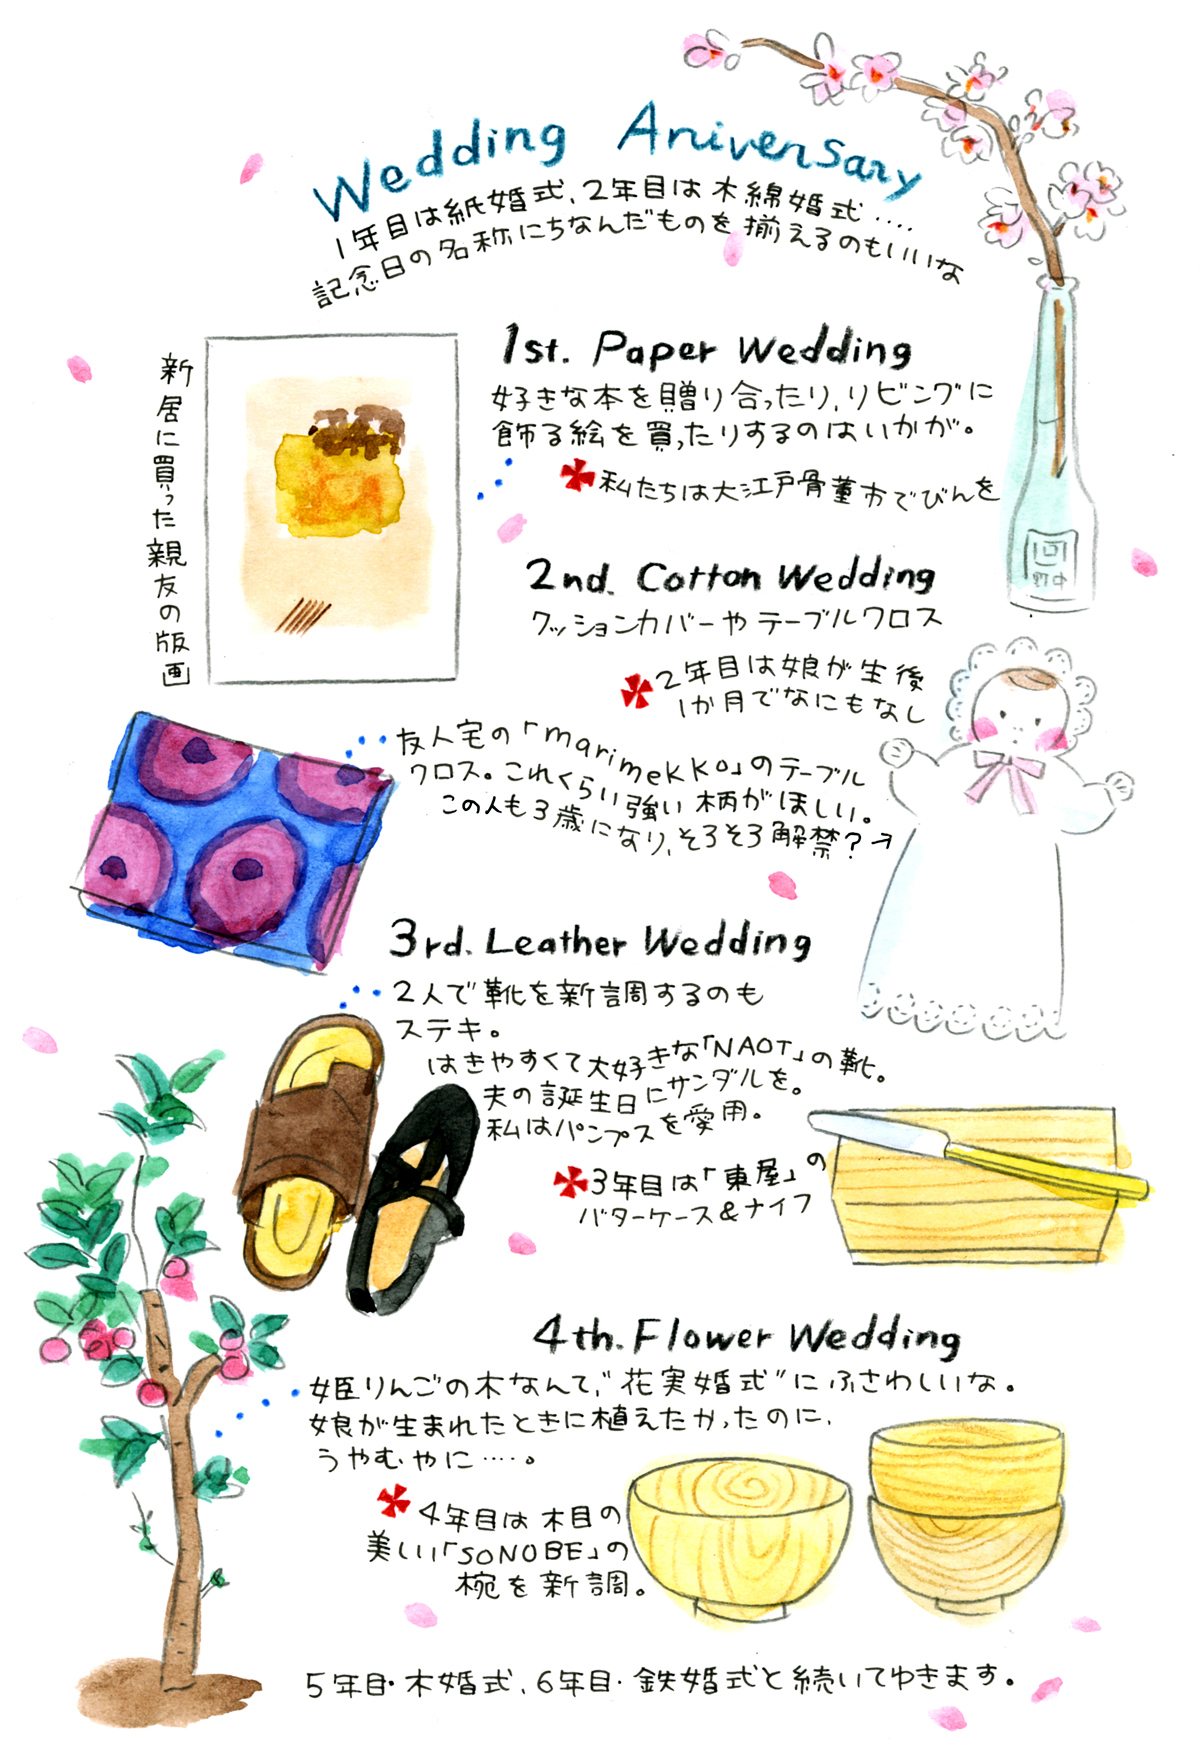 Wedding Aniversary
1年目は紙婚式、2年目は木綿婚式‥‥
記念日の名称にちなんだものを揃えるのもいいな
1st. Paper Wedding
好きな本を贈り合ったり、リビングに
飾る絵を買ったりするのはいかが。
私たちは大江戸骨董市でびんを
新居に買った親友の版画
2nd. Cotton Wedding
クッションカバーやテーブルクロス
2年目は娘が生後
1か月でなにもなし
友人宅の「marimekko」のテーブル
クロス。これくらい強い柄がほしい。
この人も3歳になり、そろそろ解禁?→
3rd. Leather Wedding
2人で靴を新調するのも
ステキ。
はきやすくて大好きな「NAOT」の靴。
夫の誕生日にサンダルを。
私はパンプスを愛用。
3年目は「東屋」の
バターケース&ナイフ
4th. Flower Wedding
姫りんごの木なんて、"花実婚式"にふさわしいな。
娘が生まれたときに植えたかったのに、
うやむやに‥‥。
4年目は木目の
美しい「SONOBE」の
椀を新調。
5年目・木婚式、6年目・鉄婚式と続いてゆきます。